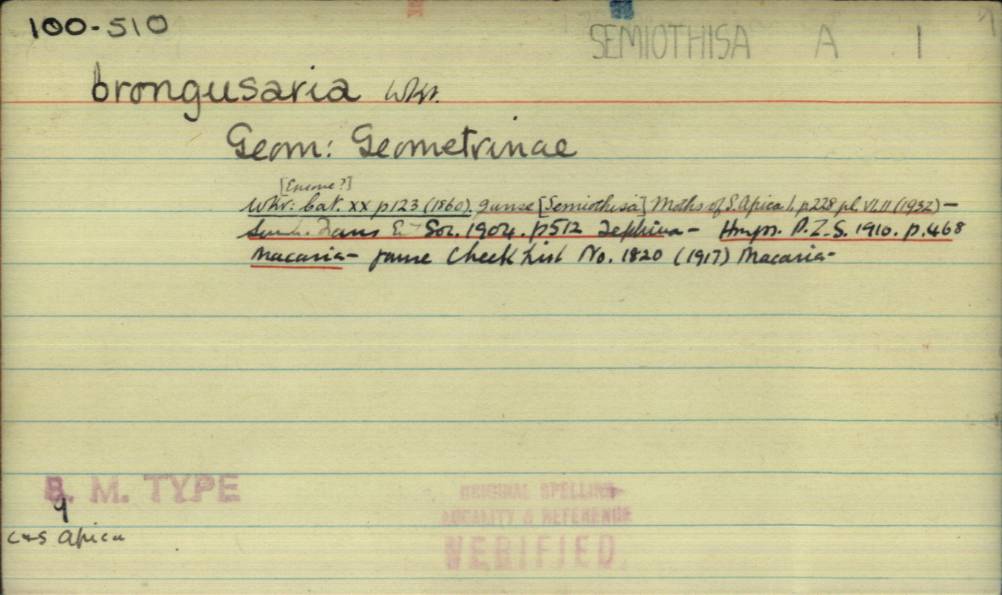 100-510
SEMIOTHISA A 1
brongusaria Wkr.
Geom: Geometrinae
[Ennome?]
Wkr: Cat. xx p123 (1860). [Semiothisa] Moths of S. Africa 1, p228 pl. VI, 11 (1932) –
Trans E Soc. 1904. p512 Tephrina – Hmps. P.Z.S. 1910. p.468
Macaria – Check List No. 1820 (1917) Macaria –
B. M. TYPE
C & S Africa
ORIGINAL SPELLING
LOCALITY & REFERENCE
VERIFIED